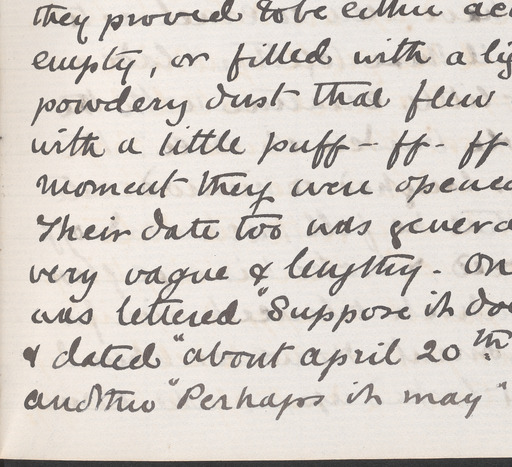 they proved to be either
empty, or filled with a
powdery dust that flew
with a little puff - ff - ff
moment they were opened
Their date too was genera
very vague & lengthy. On
was lettered "Suppose it do
& dated "about april 20th
another "Perhaps it may"